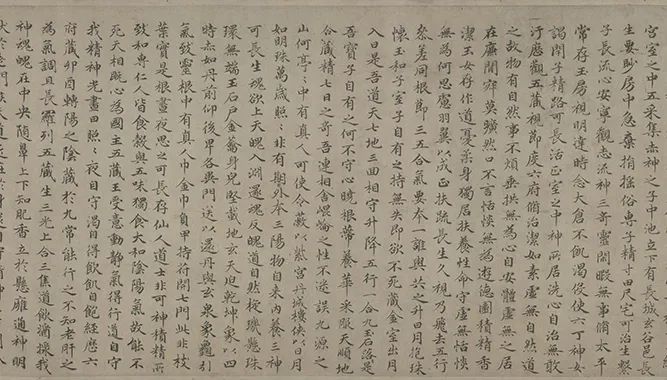 宮室之中五采集赤神之子中池立下有長城玄谷邑長
生要眇房中急棄捐搖俗専子精寸田尺宅可治生繫
子長流心安寧觀志流神三奇靈閒暇無事脩太平
常存玉房視明達時念大倉不飢渴役使六丁神女
謁閇子精路可長活正室之中神所居洗心自治無敢
汙歷觀五藏視節度六府脩治潔如素虛無自然道
之故物有自然事不煩垂拱無為心自安體虛無之居
在廉閒寂莫曠然口不言恬惔無為遊德園積精香
潔玉女存作道憂柔身獨居扶養性命守虛無恬惔
無為何思慮羽翼以成正扶疏長生久視乃飛去五行
參差同根節三五合氣要本一誰與共之升日月抱珠
懷玉和子室子自有之持無失即欲不死藏金室出月
入日是吾道天七地三回相守升降五行一合九玉石落是
吾寶子自有之何不守心曉根蒂養華采服天順地
合藏精七日之奇吾連相舍崐崘之性不迷誤九源之
山何亭亭中有真人可使令蔽以紫宮丹城樓俠以日月
如明珠萬歲照照非有期外本三陽物自來內養三神
可長生魂欲上天魄入淵還魂反魄道自然旋璣懸珠
環無端玉石戶金籥身兒堅載地玄天迫乾坤象以四
時赤如丹前仰後卑各異門送以還丹與玄泉象龜引
氣致靈根中有真人巾金巾負甲持符開七門此非枝
葉實是根晝夜思之可長存仙人道士非可神積精所
致和専仁人皆食穀與五味獨食大和陰陽氣故能不
死天相既心為國主五藏王受意動靜氣得行道自守
我精神光晝日照照夜自守渴自得飲飢自飽經歷六
府藏卯酉轉陽之陰藏於九常能行之不知老肝之
為氣調且長羅列五藏生三光上合三焦道飲漿我
神魂魄在中央隨鼻上下知肥香立於懸雍通神明